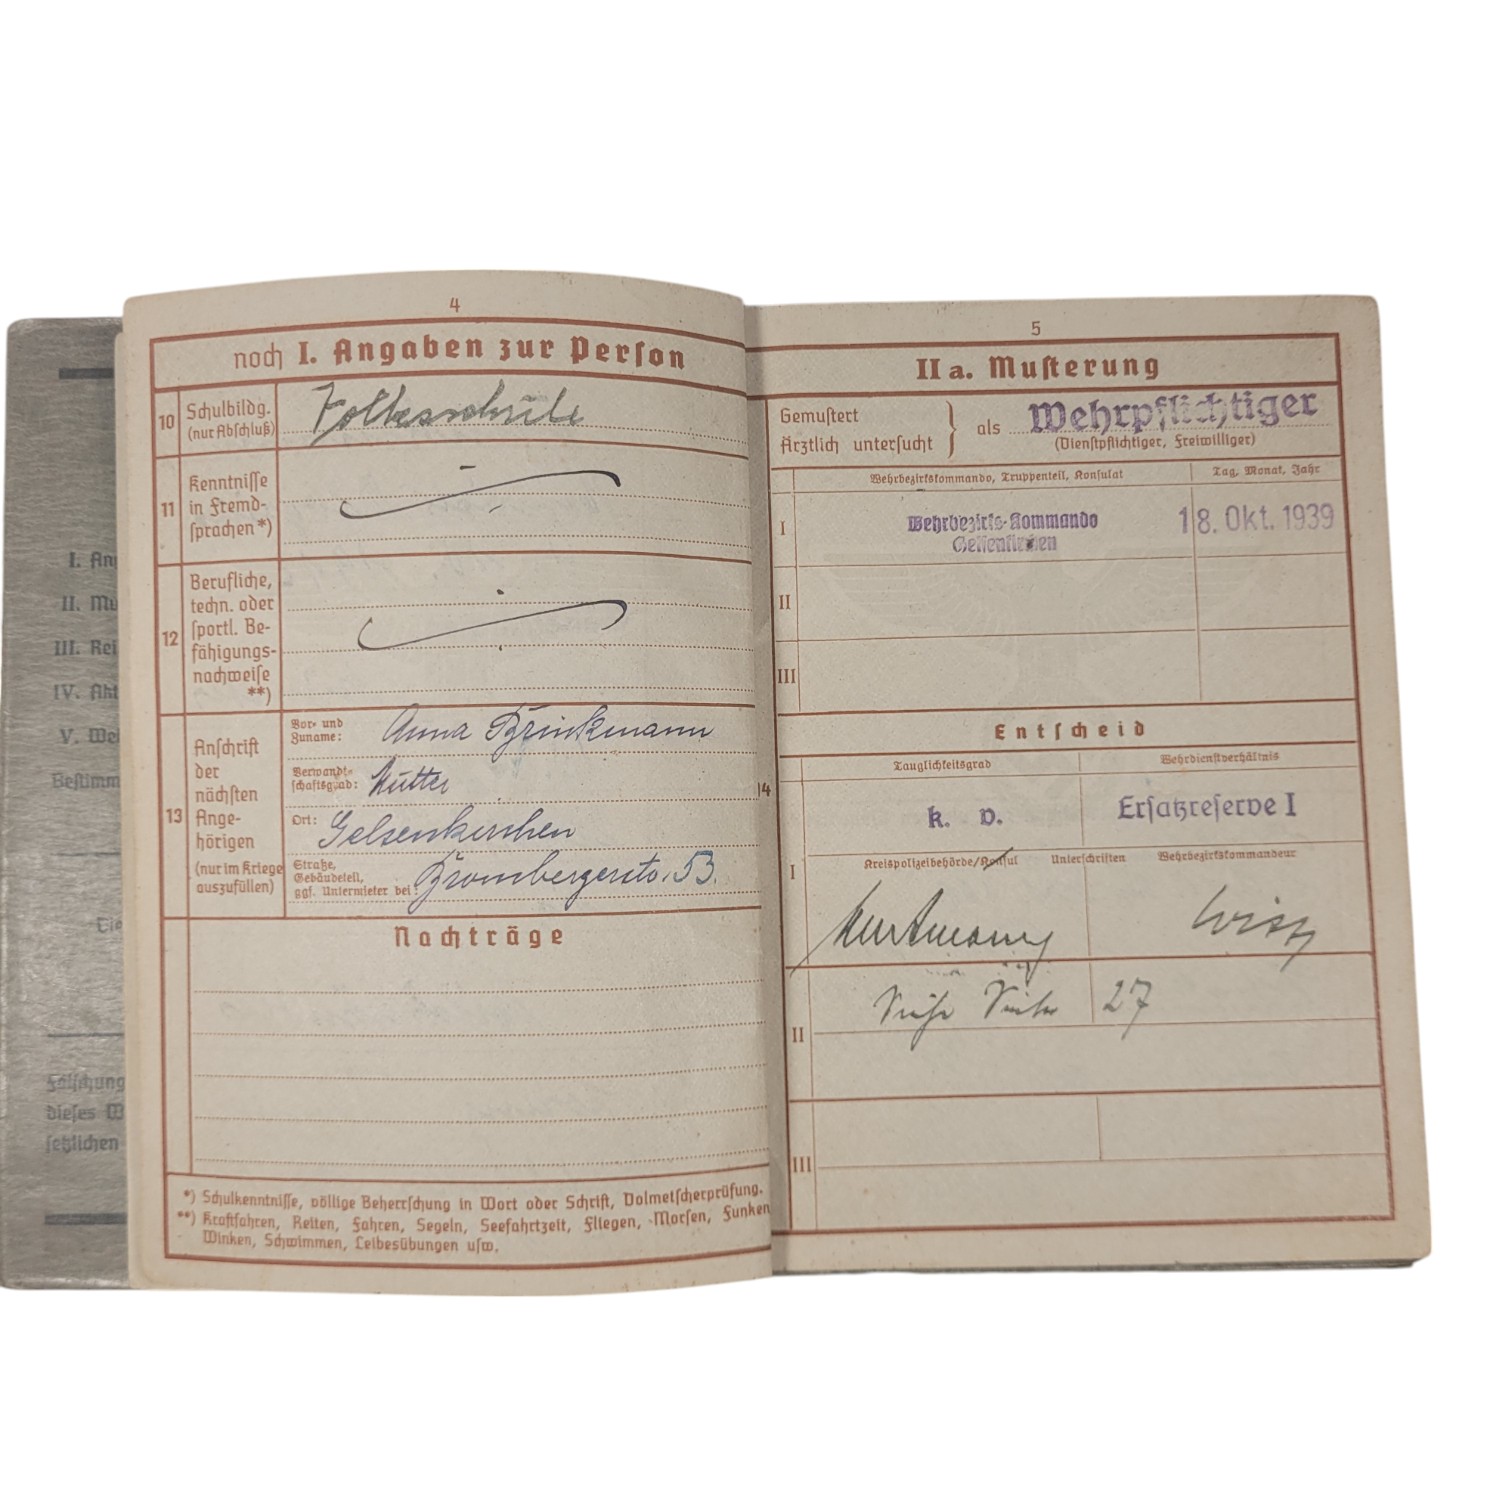 I. An
II. Mu
III. Rei
IV. Akt
V. We
Bestimm
Die
Fälschung
dieses W
setzlichen
4
noch I. Angaben zur Person
10 Schulbildg.
(nur Abschluß)
Volksschule
11 Kenntnisse
in Fremd-
sprachen*)
12 Berufliche,
techn. oder
sportl. Be-
fähigungs-
nachweise
**)
13 Anschrift
der
nächsten
Ange-
hörigen
(nur im Kriege
auszufüllen)
Vor- und
Zuname: Anna Brinkmann
Verwandt-
schaftsgrad: Mutter
Ort: Gelsenkirchen
Straße,
Gebäudeteil,
ggf. Untermieter bei: Brombergerstr. 53.
Nachträge
*) Schulkenntnisse, völlige Beherrschung in Wort oder Schrift, Dolmetscherprüfung.
**) Kraftfahren, Reiten, Fahren, Segeln, Seefahrtzeit, Fliegen, Morsen, Funken
Winken, Schwimmen, Leibesübungen usw.
5
IIa. Musterung
Gemustert
Ärztlich untersucht } als Wehrpflichtiger
(Dienstpflichtiger, Freiwilliger)
Wehrbezirkskommando, Truppenteil, Konsulat Tag, Monat, Jahr
I Wehrbezirks-Kommando
Gelsenkirchen
18. Okt. 1939
II
III
Entscheid
14
Tauglichkeitsgrad Wehrdienstverhältnis
k. v. Ersatzreserve I
I Kreispolizeibehörde/Konsul Unterschriften Wehrbezirkskommandeur
II Siehe Seite 27
III